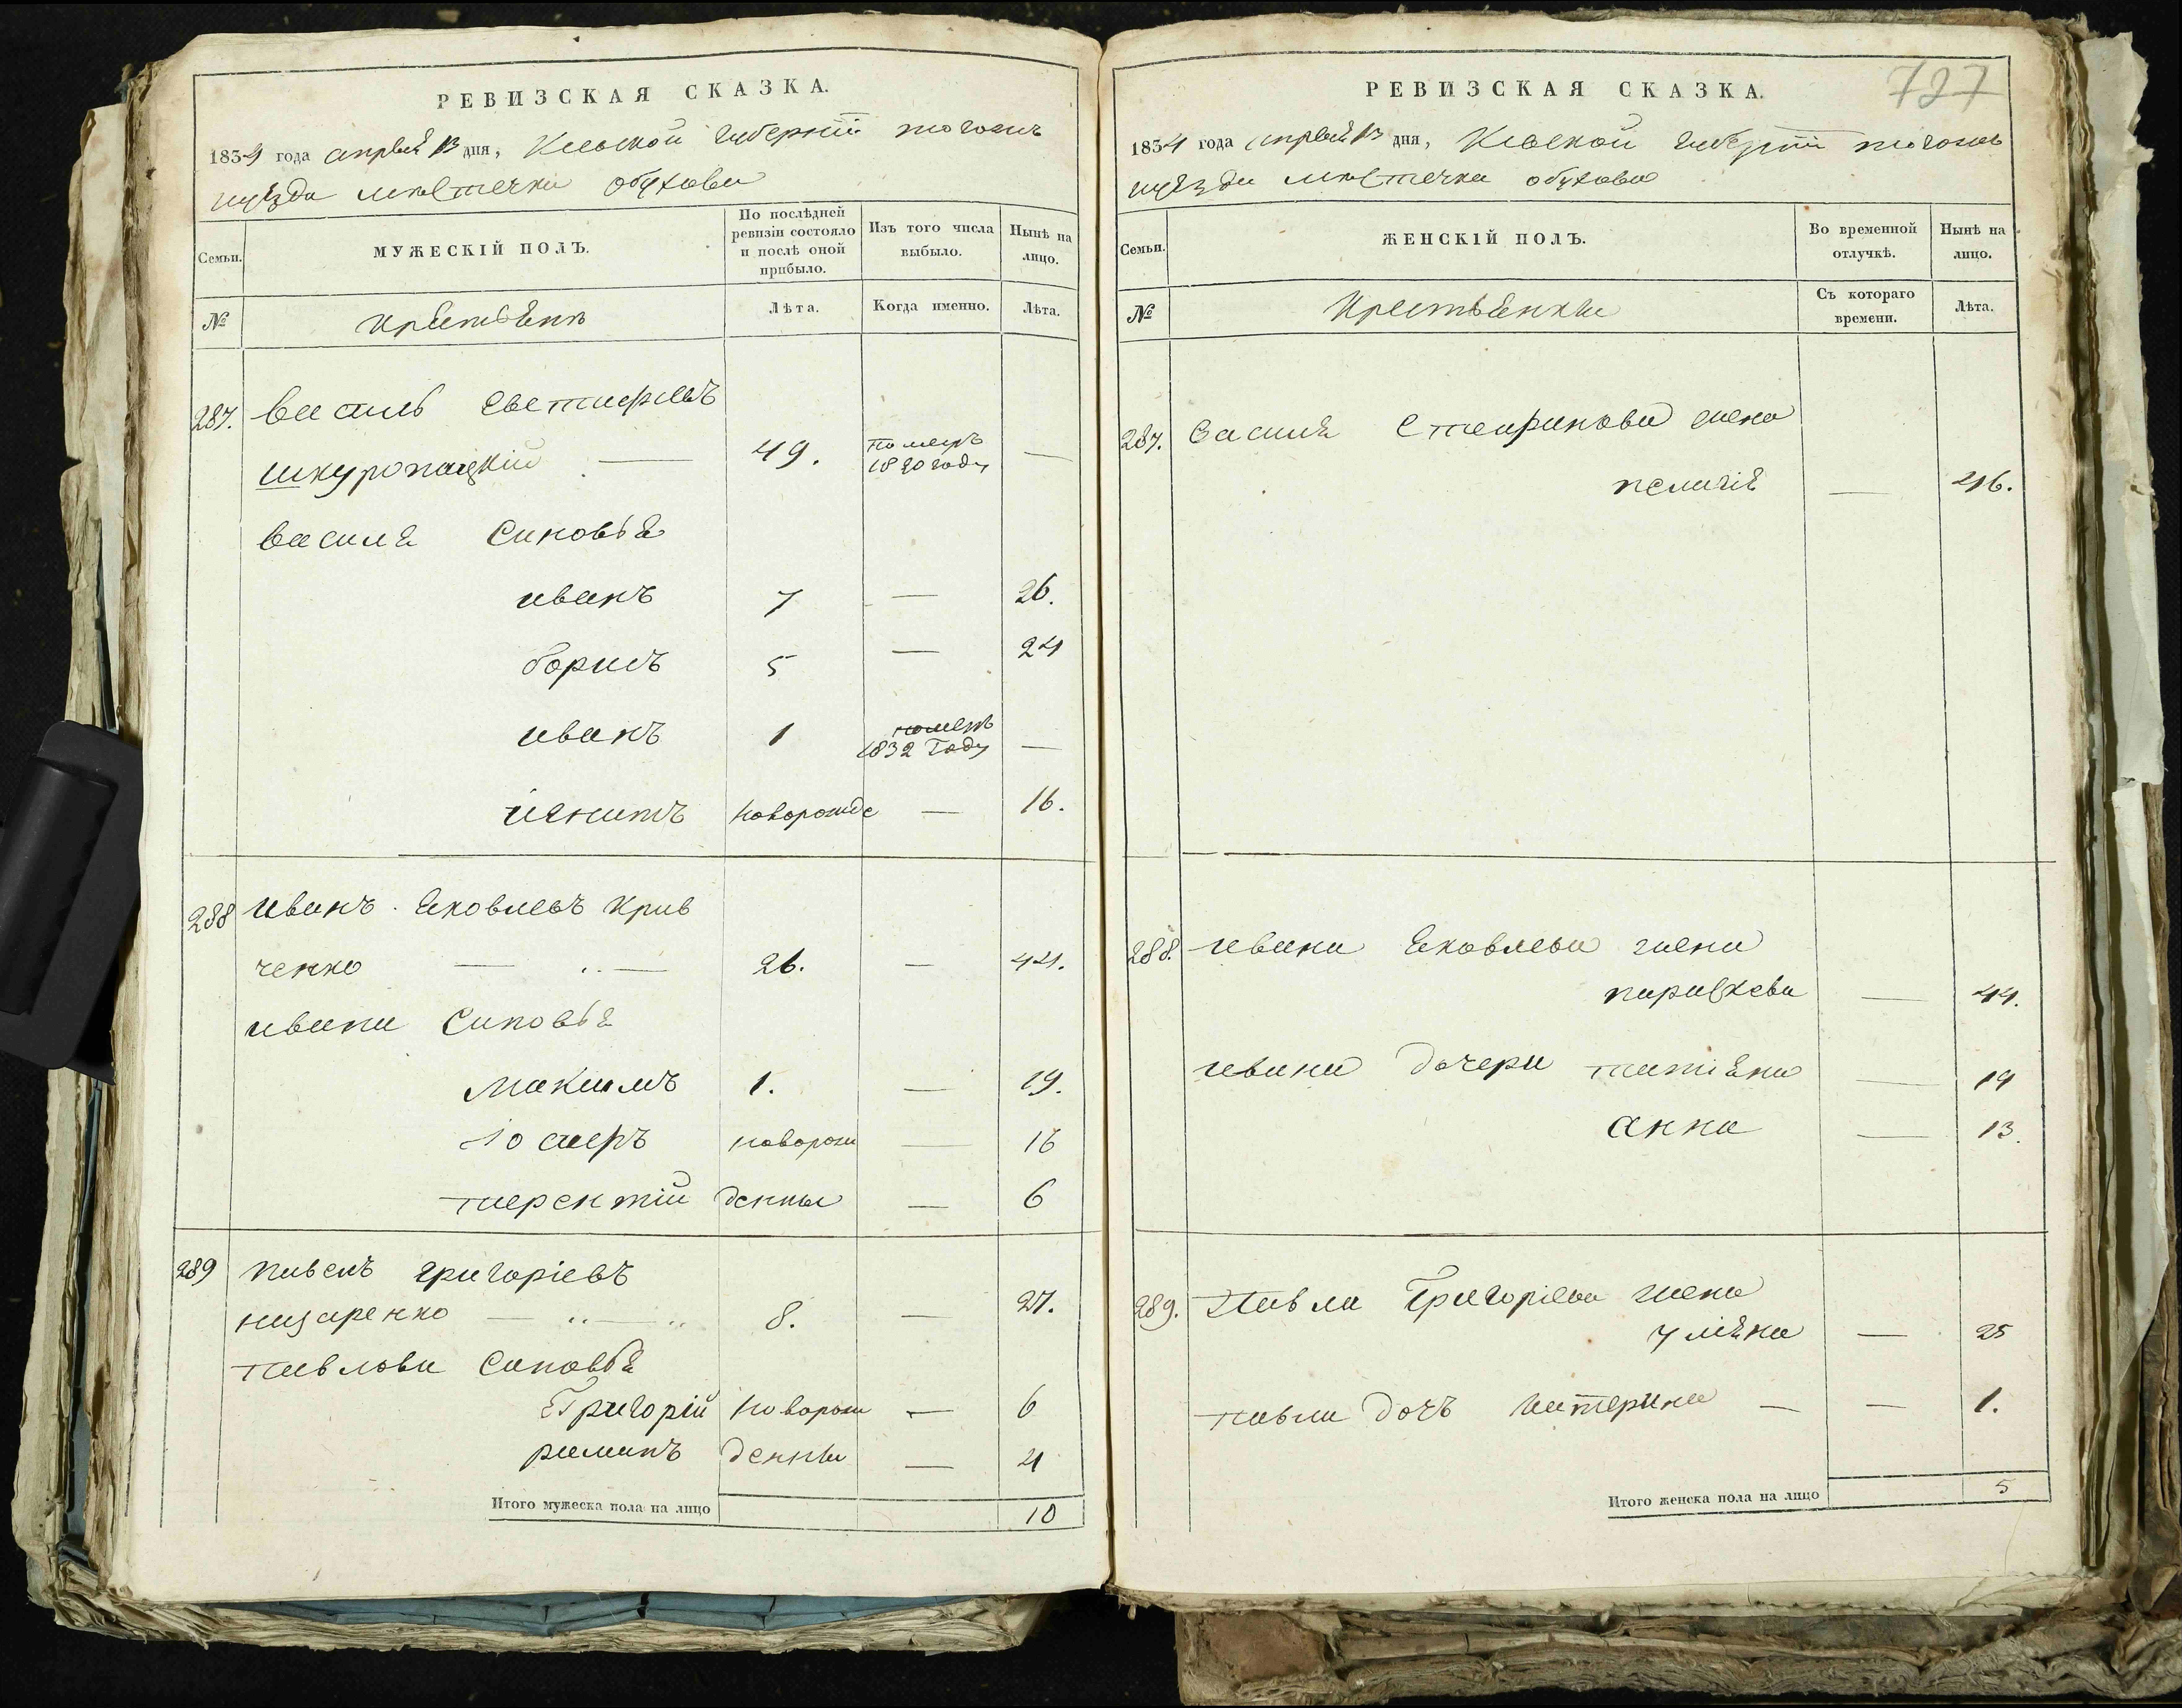 РЕВИЗСКАЯ СКАЗКА.
1834 года апреля 13 дня, Киевской губернии того жъ
уѣзда местечка обухова
Семьи.
МУЖЕСКІЙ ПОЛЪ.
По послѣдней ревизіи состояло и послѣ оной прибыло.
Изъ того числа выбыло.
Нынѣ на лицо.
№
крестьяне
Лѣта.
Когда именно.
Лѣта.
287. василь
шкуропацкій — 49. померъ —
году
василя синовья
иванъ 7 — 26.
борисъ 5 — 24
иванъ 1 померъ —
1832 году
игнатъ новорожде — 16.
288 иванъ яковлевъ крив
ченко — 26. — 44.
ивана синовья
максимъ 1. — 19.
іосифъ новорож — 16
терентій денны — 6
289 павелъ григоріевъ
назаренко — 8. — 27.
павлови синовья
Григорій новорож — 6
романъ денны — 4
Итого мужеска пола на лицо 10
727
РЕВИЗСКАЯ СКАЗКА.
1834 года апреля 13 дня, Киевской губерніи того жъ
уѣзда местечка обухова
Семьи.
ЖЕНСКІЙ ПОЛЪ.
Во временной отлучкѣ.
Нынѣ на лицо.
№
крестьянки
Съ котораго времени.
Лѣта.
287. василя жена
пелагія — 46.
288. ивана яковлева жена
параскева — 44.
ивана дочери татіяна — 19
анна — 13.
289. Павла Григоріева жена
уліяна — 25
павла дочъ катерина — — 1.
Итого женска пола на лицо 5